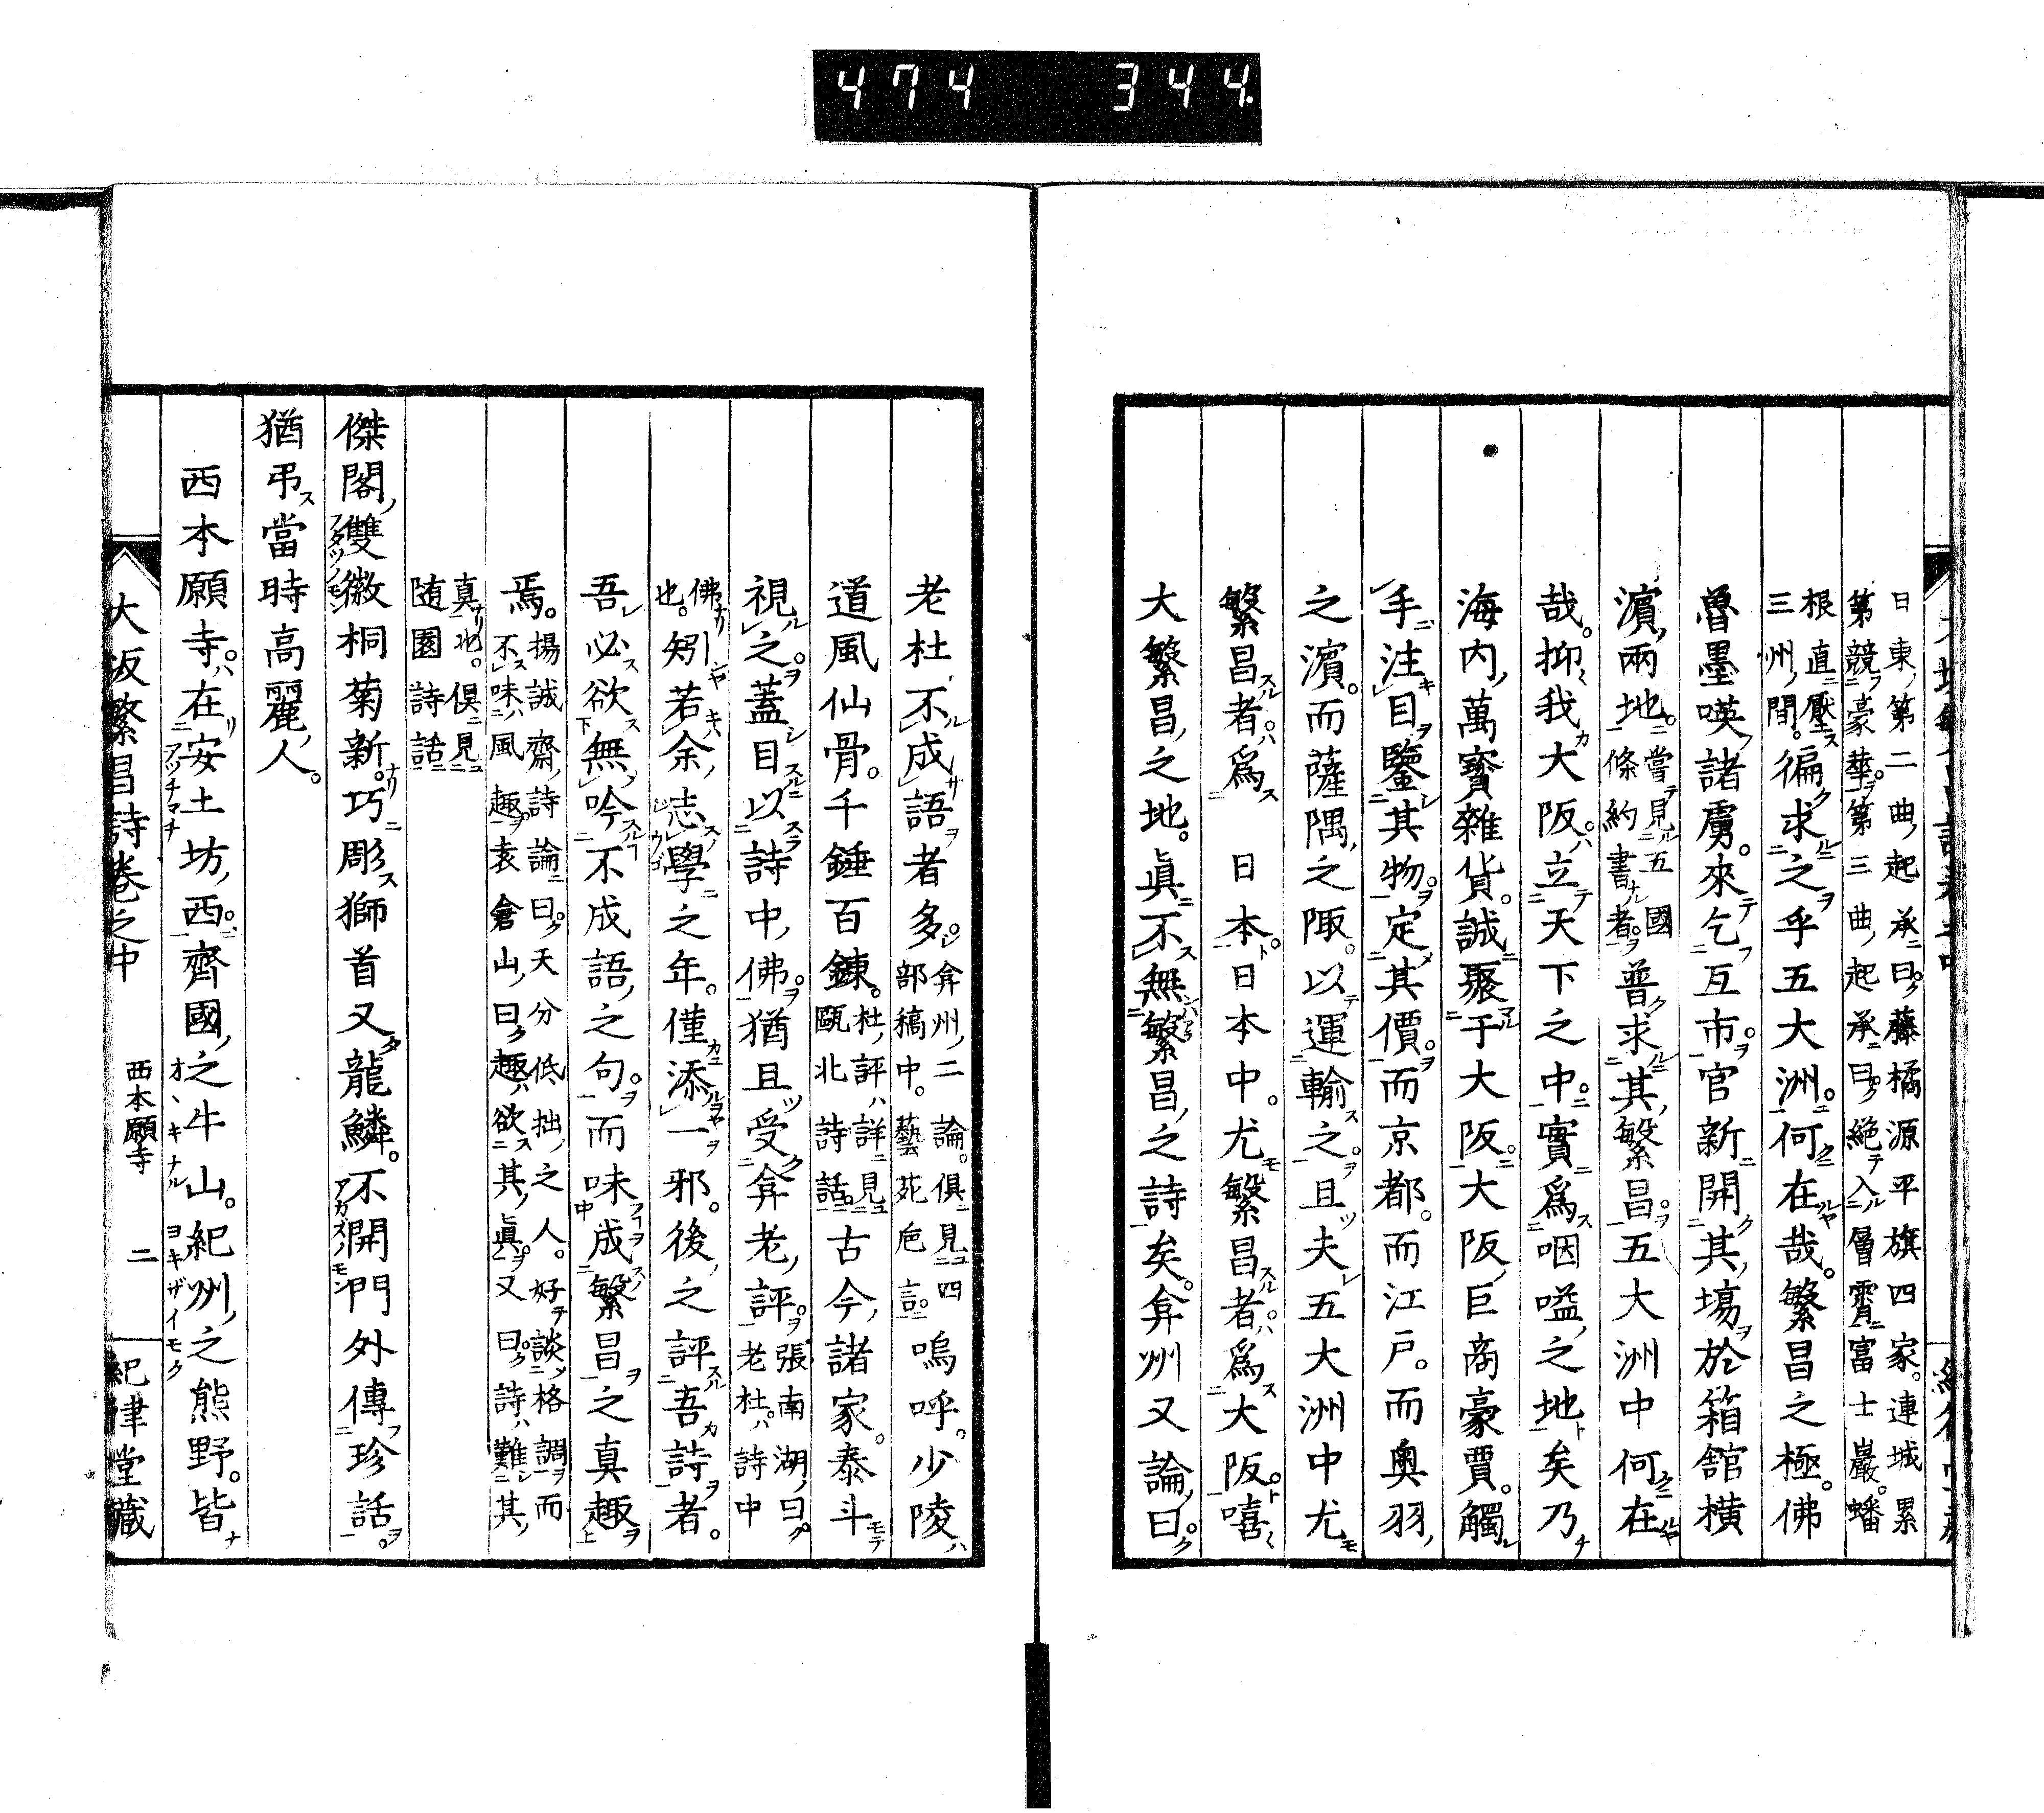 474 344.
日東第二曲起承曰藤橘源平旗四家。連城累
第競豪華。第三曲起承曰絶入層霄富士巖。蟠
根直壓三州間。徧求之乎五大洲。何在哉。繁昌之極。佛
魯墨暎諸虜。來乞互市。官新開其場於箱館横
濱兩地。嘗見五國條約書者普求其繁昌。五大洲中何在
哉。抑我大阪。立天下之中。實爲咽嗌之地矣乃
海内萬寳雜貨。誠聚于大阪。大阪巨商豪賈。觸
手注目鑒其物。定其價。而京都。而江戸。而奥羽
之濱。而薩隅之陬。以運輸之。且夫五大洲中尤
繁昌者。爲日本。日本中。尤繁昌者。爲大阪。嘻
大繁昌之地。眞不無繁昌之詩矣。弇州又論曰。
老杜不成語者多。弇州二論。俱見四部稿中。藝苑巵言 嗚呼。少陵
道風仙骨。千錘百錬。杜評詳見甌北詩話。古今諸家。泰斗
視之。蓋目以詩中佛。猶且受弇老評。張南湖曰。老杜詩中
佛也。矧若余志學之年。僅添一邪。後之評吾詩者。
吾必欲無吟不成語之句。而味成繁昌之真趣
焉。揚誠齋詩論曰。天分低拙之人。好談格調。而不味風趣。袁倉山曰趣欲其眞。又曰。詩難其
真也。俱見随園詩話
傑閣雙徽桐菊新。巧彫獅首又龍鱗。不開門外傳珍話。
フタツノモン アカズノモン
猶弔當時高麗人。
西本願寺。在安土坊西。齊國之牛山。紀州之熊野。皆
アツチマチ オヽキナル ヨキザイモク
大阪繁昌詩卷之中 西本願寺 二 紀律堂藏